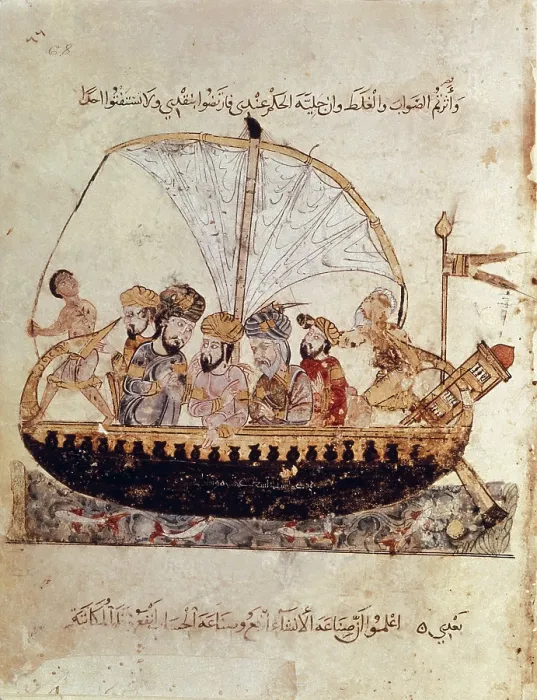 68
وأثرتم الصواب والغلط وان جلية الحكم عندي فارتضوا بنقدي ولا تستفتوا احدا
بعدي اعلموا ان صناعة الانشاء ارفع وصناعة الحساب انفع وقلم المكاتبة